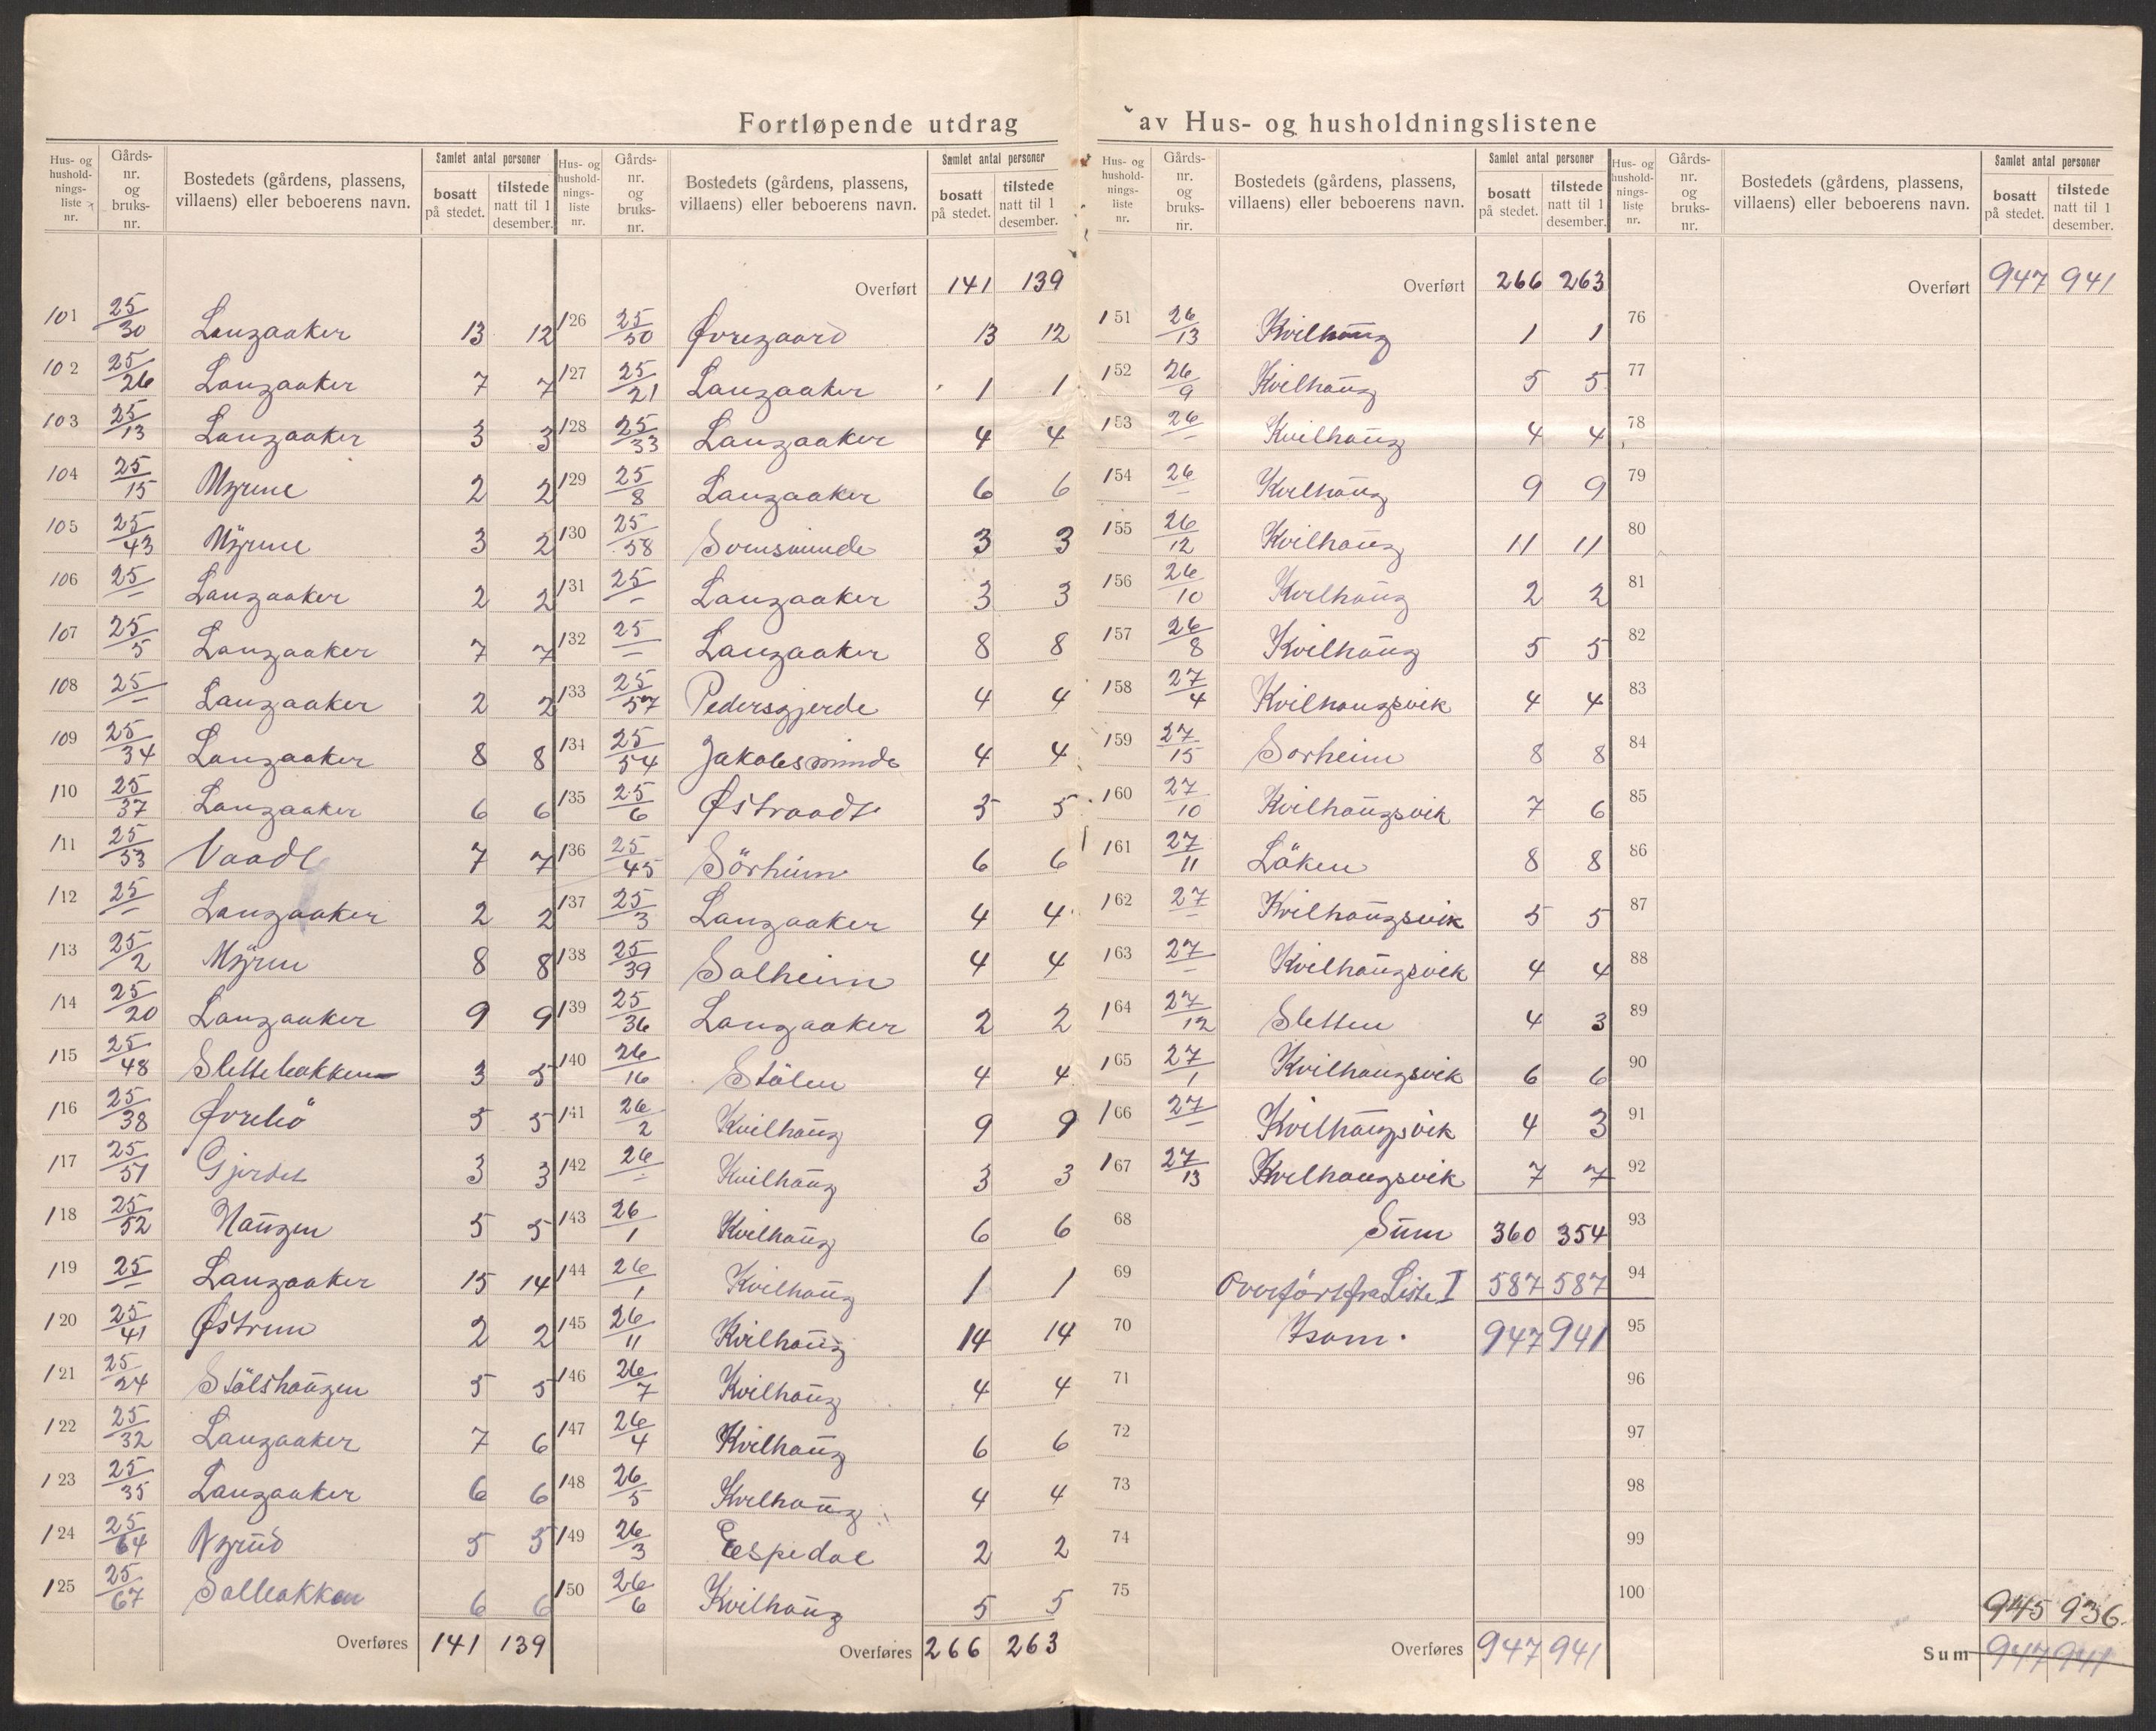 Fortløpende utdrag av Hus- og husholdningslistene
Hus- og husholdnings-liste nr. | Gårds-nr. og bruks-nr. | Bostedets (gårdens, plassens, villaens) eller beboerens navn. | Samlet antal personer | bosatt på stedet. | tilstede natt til 1 desember.
101 25/30 Langaaker 13 12
102 25/26 Langaaker 7 7
103 25/13 Langaaker 3 3
104 25/15 Myrene 2 2
105 25/43 Myrene 3 2
106 25/– Langaaker 2 2
107 25/5 Langaaker 7 7
108 25/– Langaaker 2 2
109 25/34 Langaaker 8 8
110 25/37 Langaaker 6 6
111 25/53 Vaadl 7 7
112 25/– Langaaker 2 2
113 25/2 Myren 8 8
114 25/20 Langaaker 9 9
115 25/48 Slettebakken 3 5
116 25/38 Øvrebö 5 5
117 25/51 Gjerdet 3 3
118 25/52 Haugen 5 5
119 25/– Langaaker 15 14
120 25/41 Østrem 2 2
121 25/24 Stölshaugen 5 5
122 25/32 Langaaker 7 6
123 25/35 Langaaker 6 6
124 25/64 Nyrud 5 5
125 25/67 Solbakken 6 6
Overføres 141 139
Hus- og husholdnings-liste nr. | Gårds-nr. og bruks-nr. | Bostedets (gårdens, plassens, villaens) eller beboerens navn. | Samlet antal personer | bosatt på stedet. | tilstede natt til 1 desember.
Overført 141 139
126 25/50 Øvregaard 13 12
127 25/21 Langaaker 1 1
128 25/33 Langaaker 4 4
129 25/8 Langaaker 6 6
130 25/58 Svensminde 3 3
131 25/– Langaaker 3 3
132 25/– Langaaker 8 8
133 25/57 Pedersgjerde 4 4
134 25/54 Jakobsminde 4 4
135 25/6 Østraadt 5 5
136 25/45 Sörheim 6 6
137 25/3 Langaaker 4 4
138 25/39 Solheim 4 4
139 25/36 Langaaker 2 2
140 26/16 Stölen 4 4
141 26/2 Kvilhaug 9 9
142 26/– Kvilhaug 3 3
143 26/1 Kvilhaug 6 6
144 26/1 Kvilhaug 1 1
145 26/11 Kvilhaug 14 14
146 26/7 Kvilhaug 4 4
147 26/4 Kvilhaug 6 6
148 26/5 Kvilhaug 4 4
149 26/3 Espedal 2 2
150 26/6 Kvilhaug 5 5
Overføres 266 263
Hus- og husholdnings-liste nr. | Gårds-nr. og bruks-nr. | Bostedets (gårdens, plassens, villaens) eller beboerens navn. | Samlet antal personer | bosatt på stedet. | tilstede natt til 1 desember.
Overført 266 263
151 26/13 Kvilhaug 1 1
152 26/9 Kvilhaug 5 5
153 26/– Kvilhaug 4 4
154 26/– Kvilhaug 9 9
155 26/12 Kvilhaug 11 11
156 26/10 Kvilhaug 2 2
157 26/8 Kvilhaug 5 5
158 27/4 Kvilhaugsvik 4 4
159 27/15 Sorheim 8 8
160 27/10 Kvilhaugsvik 7 6
161 27/11 Löken 8 8
162 27/– Kvilhaugsvik 5 5
163 27/– Kvilhaugsvik 4 4
164 27/12 Sletten 4 3
165 27/1 Kvilhaugsvik 6 6
166 27/– Kvilhaugsvik 4 3
167 27/13 Kvilhaugsvik 7 7
68 Sum 360 354
69 Overført fra Liste I 587 587
70 Isam. 947 941
71
72
73
74
75
Overføres 947 941
Hus- og husholdnings-liste nr. | Gårds-nr. og bruks-nr. | Bostedets (gårdens, plassens, villaens) eller beboerens navn. | Samlet antal personer | bosatt på stedet. | tilstede natt til 1 desember.
Overført 947 941
76
77
78
79
80
81
82
83
84
85
86
87
88
89
90
91
92
93
94
95
96
97
98
99
100
945 936.
Sum 947 941